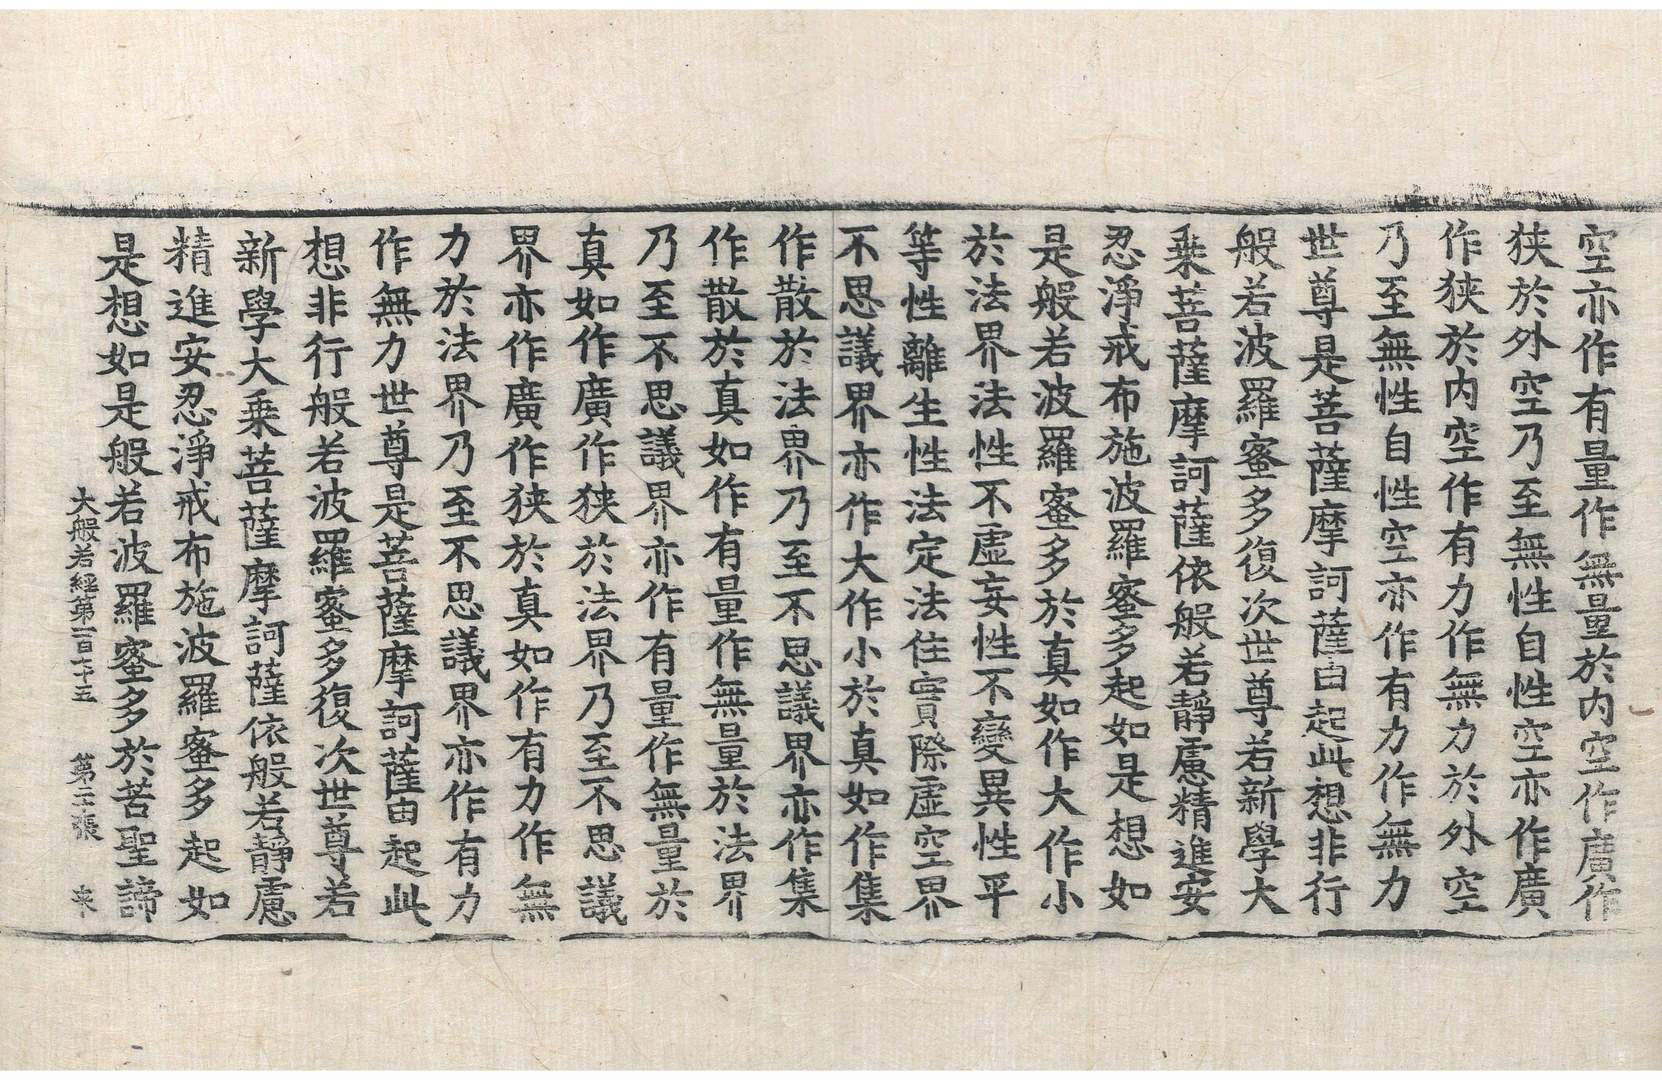 空亦作有量作無量於內空作廣作
狹於外空乃至無性自性空亦作廣
作狹於內空作有力作無力於外空
乃至無性自性空亦作有力作無力
世尊是菩薩摩訶薩由起此想非行
般若波羅蜜多復次世尊若新學大
乗菩薩摩訶薩依般若靜慮精進安
忍淨戒布施波羅蜜多起如是想如
是般若波羅蜜多於真如作大作小
於法界法性不虛妄性不變異性平
等性離生性法定法住實際虛空界
不思議界亦作大作小於真如作集
作散於法界乃至不思議界亦作集
作散於真如作有量作無量於法界
乃至不思議界亦作有量作無量於
真如作廣作狹於法界乃至不思議
界亦作廣作狹於真如作有力作無
力於法界乃至不思議界亦作有力
作無力世尊是菩薩摩訶薩由起此
想非行般若波羅蜜多復次世尊若
新學大乗菩薩摩訶薩依般若靜慮
精進安忍淨戒布施波羅蜜多起如
是想如是般若波羅蜜多於苦聖諦
大般若經第一百七十五 第二張 来